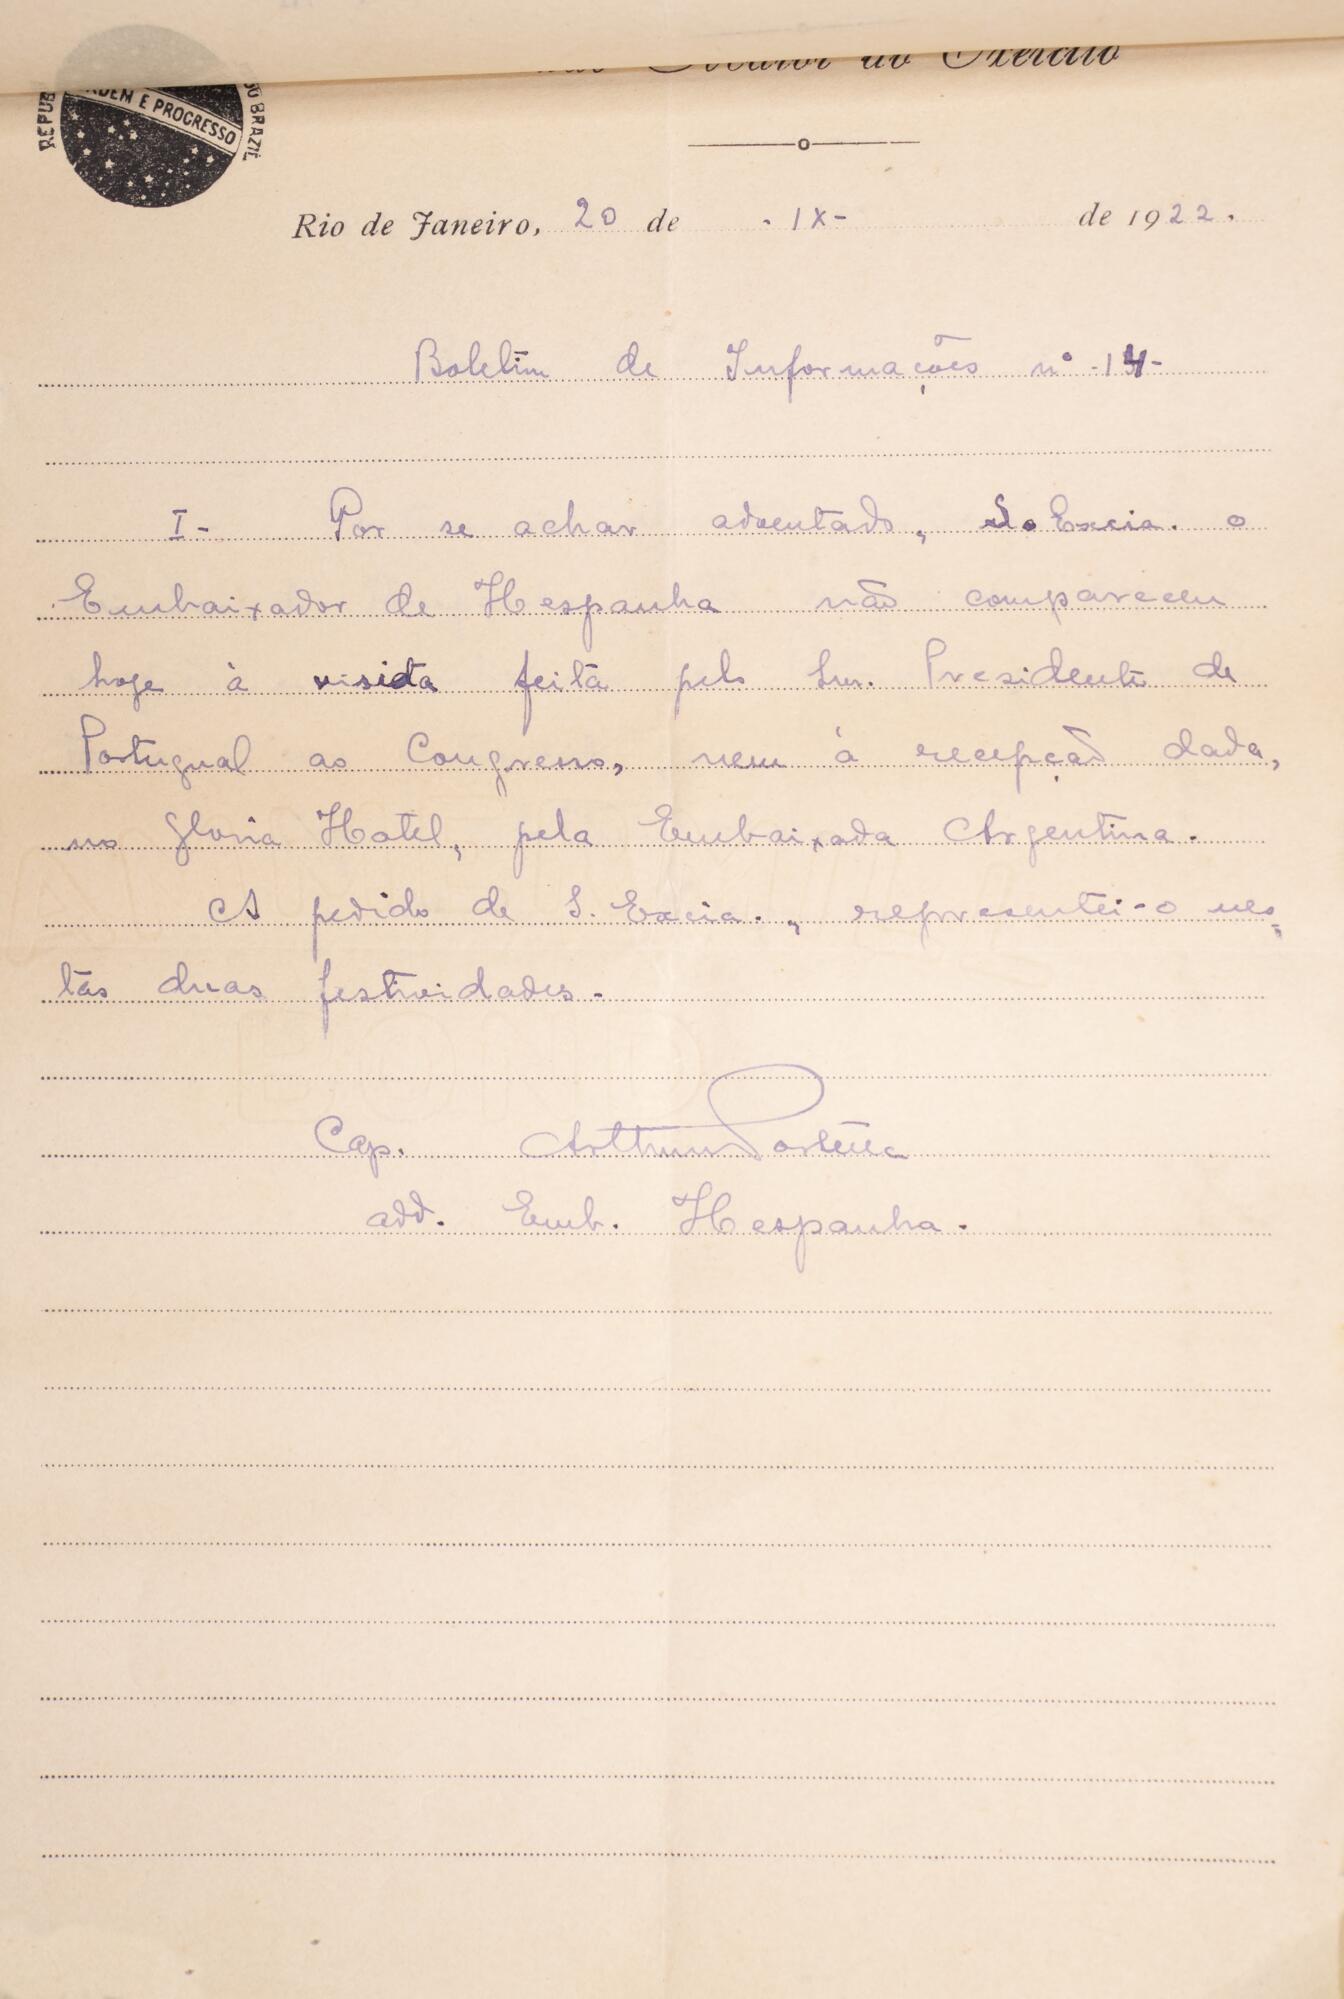 do Exercito
ORDEM E PROGRESSO
DO BRAZIL
Rio de Janeiro, 20 de - IX - de 1922.
Boletim de Informações nº -14-
I- Por se achar adoentado, S. Excia. o
Embaixador de Hespanha não compareceu
hoje à visita feita pelo Snr. Presidente de
Portugal ao Congresso, nem à recepção dada,
no Gloria Hotel, pela Embaixada Argentina.
A pedido de S. Excia., representei-o nes-
tas duas festividades.
Cap. Arthur
add. Emb. Hespanha.